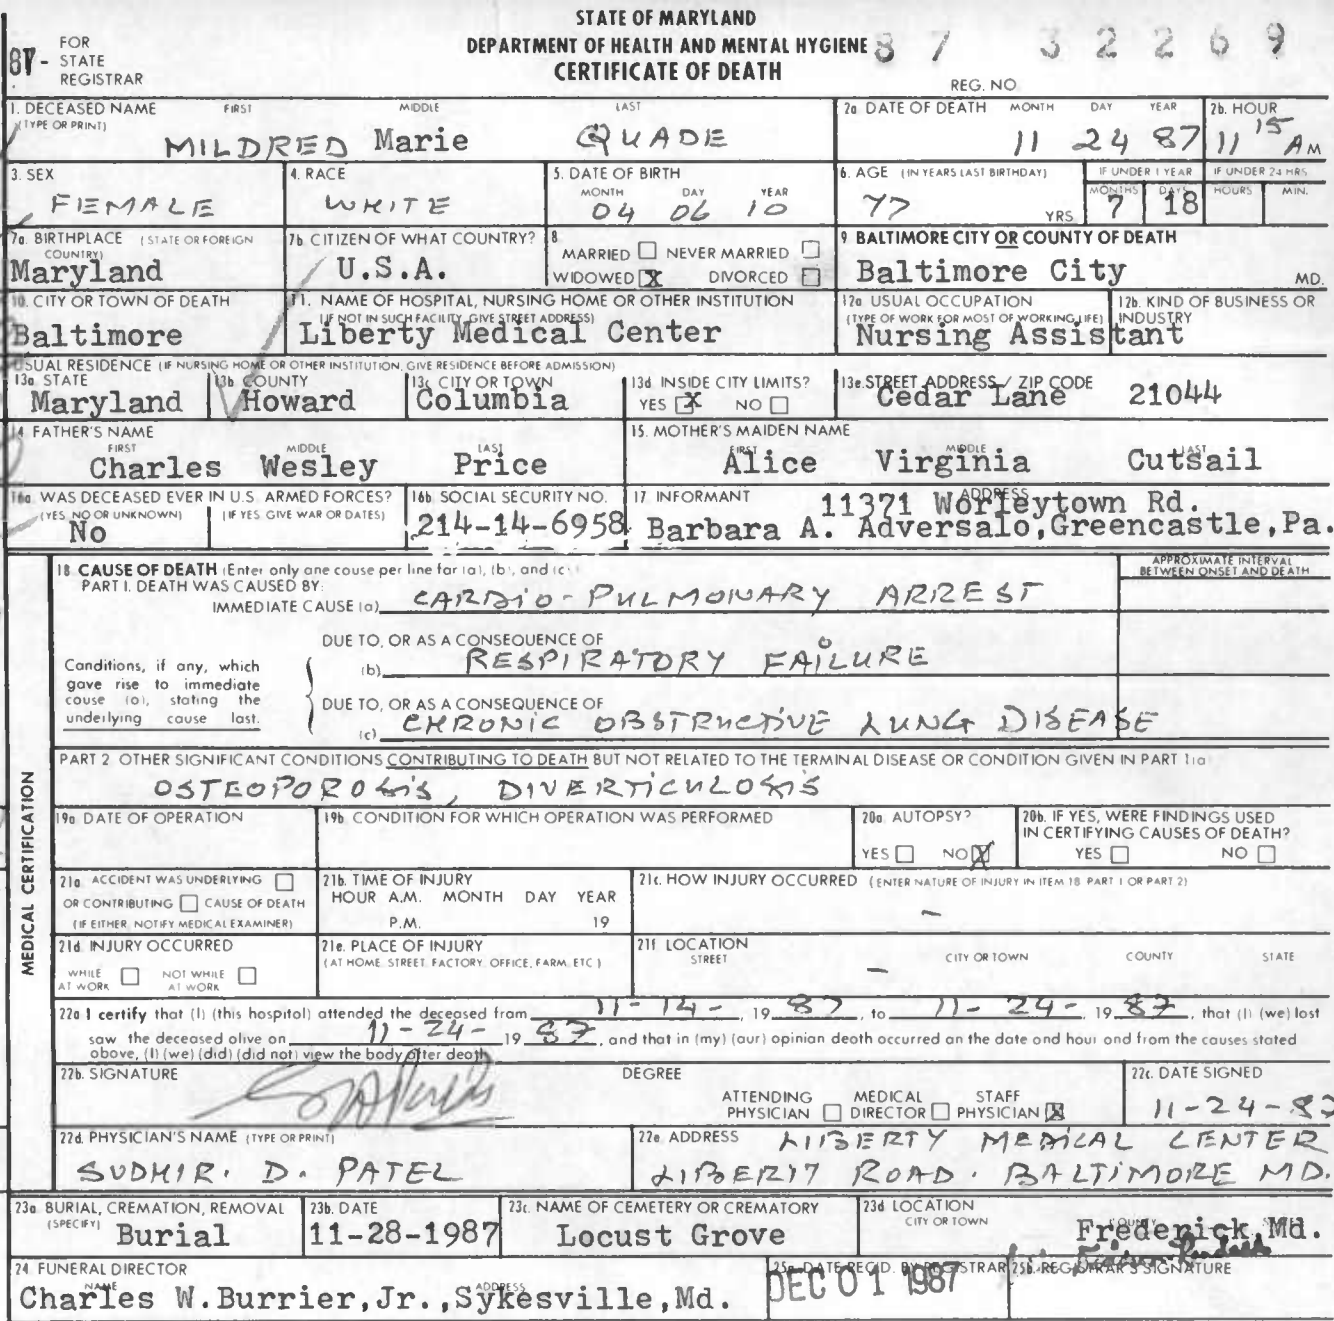 STATE OF MARYLAND
DEPARTMENT OF HEALTH AND MENTAL HYGIENE
CERTIFICATE OF DEATH
87- FOR STATE REGISTRAR
87 32269
REG. NO.
1. DECEASED NAME (TYPE OR PRINT) FIRST MIDDLE LAST
MILDRED Marie QUADE
2a. DATE OF DEATH MONTH DAY YEAR
11 24 87
2b. HOUR
11 15 AM
3. SEX
FEMALE
4. RACE
WHITE
5. DATE OF BIRTH MONTH DAY YEAR
04 06 10
6. AGE (IN YEARS LAST BIRTHDAY)
77 YRS.
IF UNDER 1 YEAR MONTHS DAYS
7 18
IF UNDER 24 HRS. HOURS MIN.
7a. BIRTHPLACE (STATE OR FOREIGN COUNTRY)
Maryland
7b. CITIZEN OF WHAT COUNTRY?
U.S.A.
8. MARRIED NEVER MARRIED
WIDOWED X DIVORCED
9. BALTIMORE CITY OR COUNTY OF DEATH
Baltimore City MD.
10. CITY OR TOWN OF DEATH
Baltimore
11. NAME OF HOSPITAL, NURSING HOME OR OTHER INSTITUTION
(IF NOT IN SUCH FACILITY, GIVE STREET ADDRESS)
Liberty Medical Center
12a. USUAL OCCUPATION
(TYPE OF WORK FOR MOST OF WORKING LIFE)
Nursing Assistant
12b. KIND OF BUSINESS OR INDUSTRY
USUAL RESIDENCE (IF NURSING HOME OR OTHER INSTITUTION, GIVE RESIDENCE BEFORE ADMISSION)
13a. STATE
Maryland
13b. COUNTY
Howard
13c. CITY OR TOWN
Columbia
13d. INSIDE CITY LIMITS?
YES X NO
13e. STREET ADDRESS / ZIP CODE
Cedar Lane 21044
14. FATHER'S NAME FIRST MIDDLE LAST
Charles Wesley Price
15. MOTHER'S MAIDEN NAME FIRST MIDDLE LAST
Alice Virginia Cutsail
16a. WAS DECEASED EVER IN U.S. ARMED FORCES?
(YES, NO OR UNKNOWN) (IF YES, GIVE WAR OR DATES)
No
16b. SOCIAL SECURITY NO.
214-14-6958
17. INFORMANT ADDRESS
11371 Worleytown Rd.
Barbara A. Adversalo, Greencastle, Pa.
MEDICAL CERTIFICATION
18. CAUSE OF DEATH (Enter only one cause per line for (a), (b), and (c).)
APPROXIMATE INTERVAL BETWEEN ONSET AND DEATH
PART I. DEATH WAS CAUSED BY:
IMMEDIATE CAUSE (a) CARDIO-PULMONARY ARREST
DUE TO, OR AS A CONSEQUENCE OF
(b) RESPIRATORY FAILURE
Conditions, if any, which
gave rise to immediate
cause (a), stating the
underlying cause last.
DUE TO, OR AS A CONSEQUENCE OF
(c) CHRONIC OBSTRUCTIVE LUNG DISEASE
PART 2 OTHER SIGNIFICANT CONDITIONS CONTRIBUTING TO DEATH BUT NOT RELATED TO THE TERMINAL DISEASE OR CONDITION GIVEN IN PART 1(a)
OSTEOPOROSIS, DIVERTICULOSIS
19a. DATE OF OPERATION
19b. CONDITION FOR WHICH OPERATION WAS PERFORMED
20a. AUTOPSY?
YES NO X
20b. IF YES, WERE FINDINGS USED IN CERTIFYING CAUSES OF DEATH?
YES NO
21a. ACCIDENT WAS UNDERLYING
OR CONTRIBUTING CAUSE OF DEATH
(IF EITHER, NOTIFY MEDICAL EXAMINER)
21b. TIME OF INJURY
HOUR A.M. MONTH DAY YEAR
P.M. 19
21c. HOW INJURY OCCURRED (ENTER NATURE OF INJURY IN ITEM 18 PART 1 OR PART 2)
-
21d. INJURY OCCURRED
WHILE AT WORK NOT WHILE AT WORK
21e. PLACE OF INJURY
(AT HOME, STREET, FACTORY, OFFICE, FARM, ETC.)
21f. LOCATION
STREET CITY OR TOWN COUNTY STATE
-
22a. I certify that (I) (this hospital) attended the deceased from 11-14-, 19 87, to 11-24-, 19 87, that (I) (we) last
saw the deceased alive on 11-24- 19 87, and that in (my) (our) opinion death occurred on the date and hour and from the causes stated
above, (I) (we) (did) (did not) view the body after death
22b. SIGNATURE
DEGREE
ATTENDING PHYSICIAN MEDICAL DIRECTOR STAFF PHYSICIAN X
22c. DATE SIGNED
11-24-87
22d. PHYSICIAN'S NAME (TYPE OR PRINT)
SUDHIR. D. PATEL
22e. ADDRESS
LIBERTY MEDICAL CENTER
LIBERTY ROAD. BALTIMORE MD.
23a. BURIAL, CREMATION, REMOVAL (SPECIFY)
Burial
23b. DATE
11-28-1987
23c. NAME OF CEMETERY OR CREMATORY
Locust Grove
23d. LOCATION CITY OR TOWN COUNTY
Frederick, Md.
24. FUNERAL DIRECTOR NAME ADDRESS
Charles W. Burrier, Jr., Sykesville, Md.
25a. DATE REC'D. BY REGISTRAR
DEC 01 1987
25b. REGISTRAR'S SIGNATURE